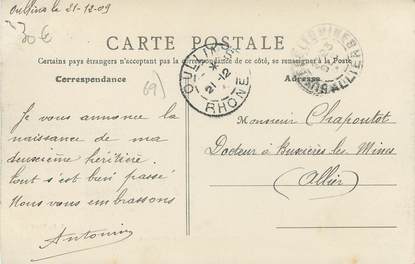 Oullins le 21-12-09
30€
CARTE POSTALE
Certains pays étrangers n'acceptant pas la correspondance de ce côté, se renseigner à la Poste
Correspondance
Adresse
(69)
OULLINS
21-12
RHONE
ALLIER
Je vous annonce la
naissance de ma
deuxième héritière
tout s'est bien passé
Nous vous embrassons
Antonin
Monsieur Chapoutot
Docteur à Buxières les Mines
(Allier)